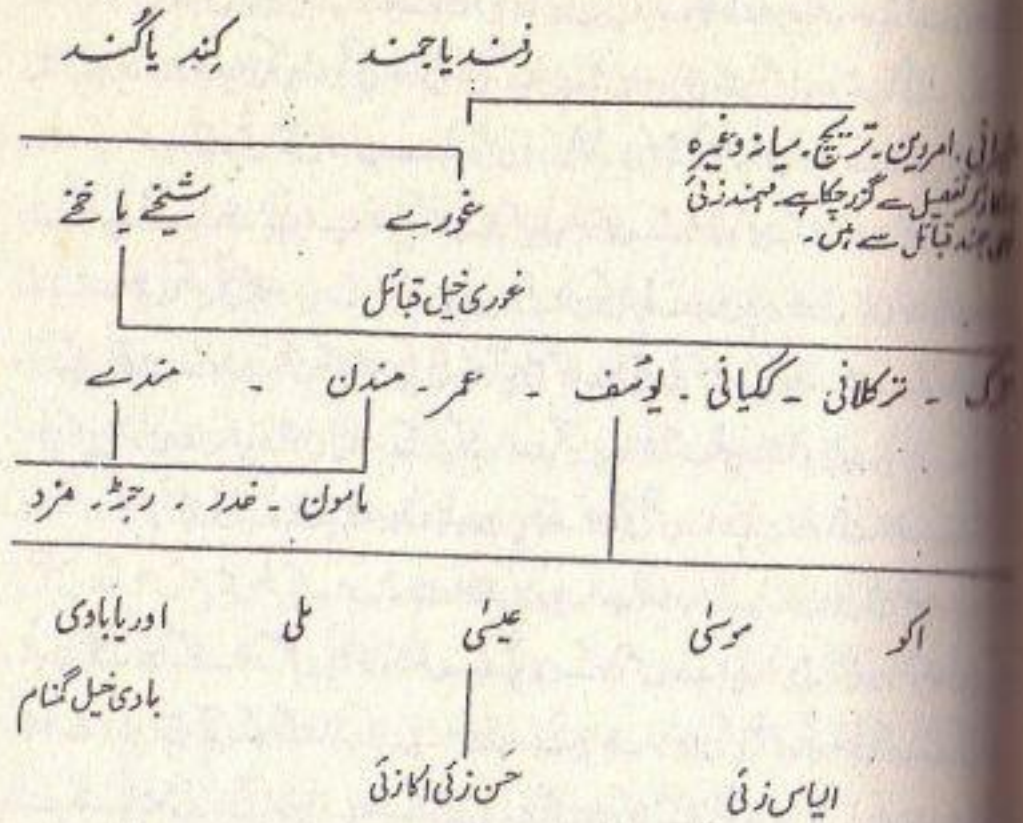 زمند یا جمند کِند یا گُند
امروین۔ ترینچ۔ میانہ وغیرہ
تفصیل سے گزر چکا ہے۔ مہمند زئی
قبائل سے ہیں۔
غورے شیخے یا خخے
غوری خیل قبائل
ترکلانی ۔ ککیانی ۔ یوسف ۔ عمر ۔ مندن ۔ مندے
مامون ۔ خدر ۔ رجڑ ۔ منزد
اکو موسیٰ عیسیٰ ملی اوریا بادی
بادی خیل گمنام
الیاس زئی حسن زئی اکازئی